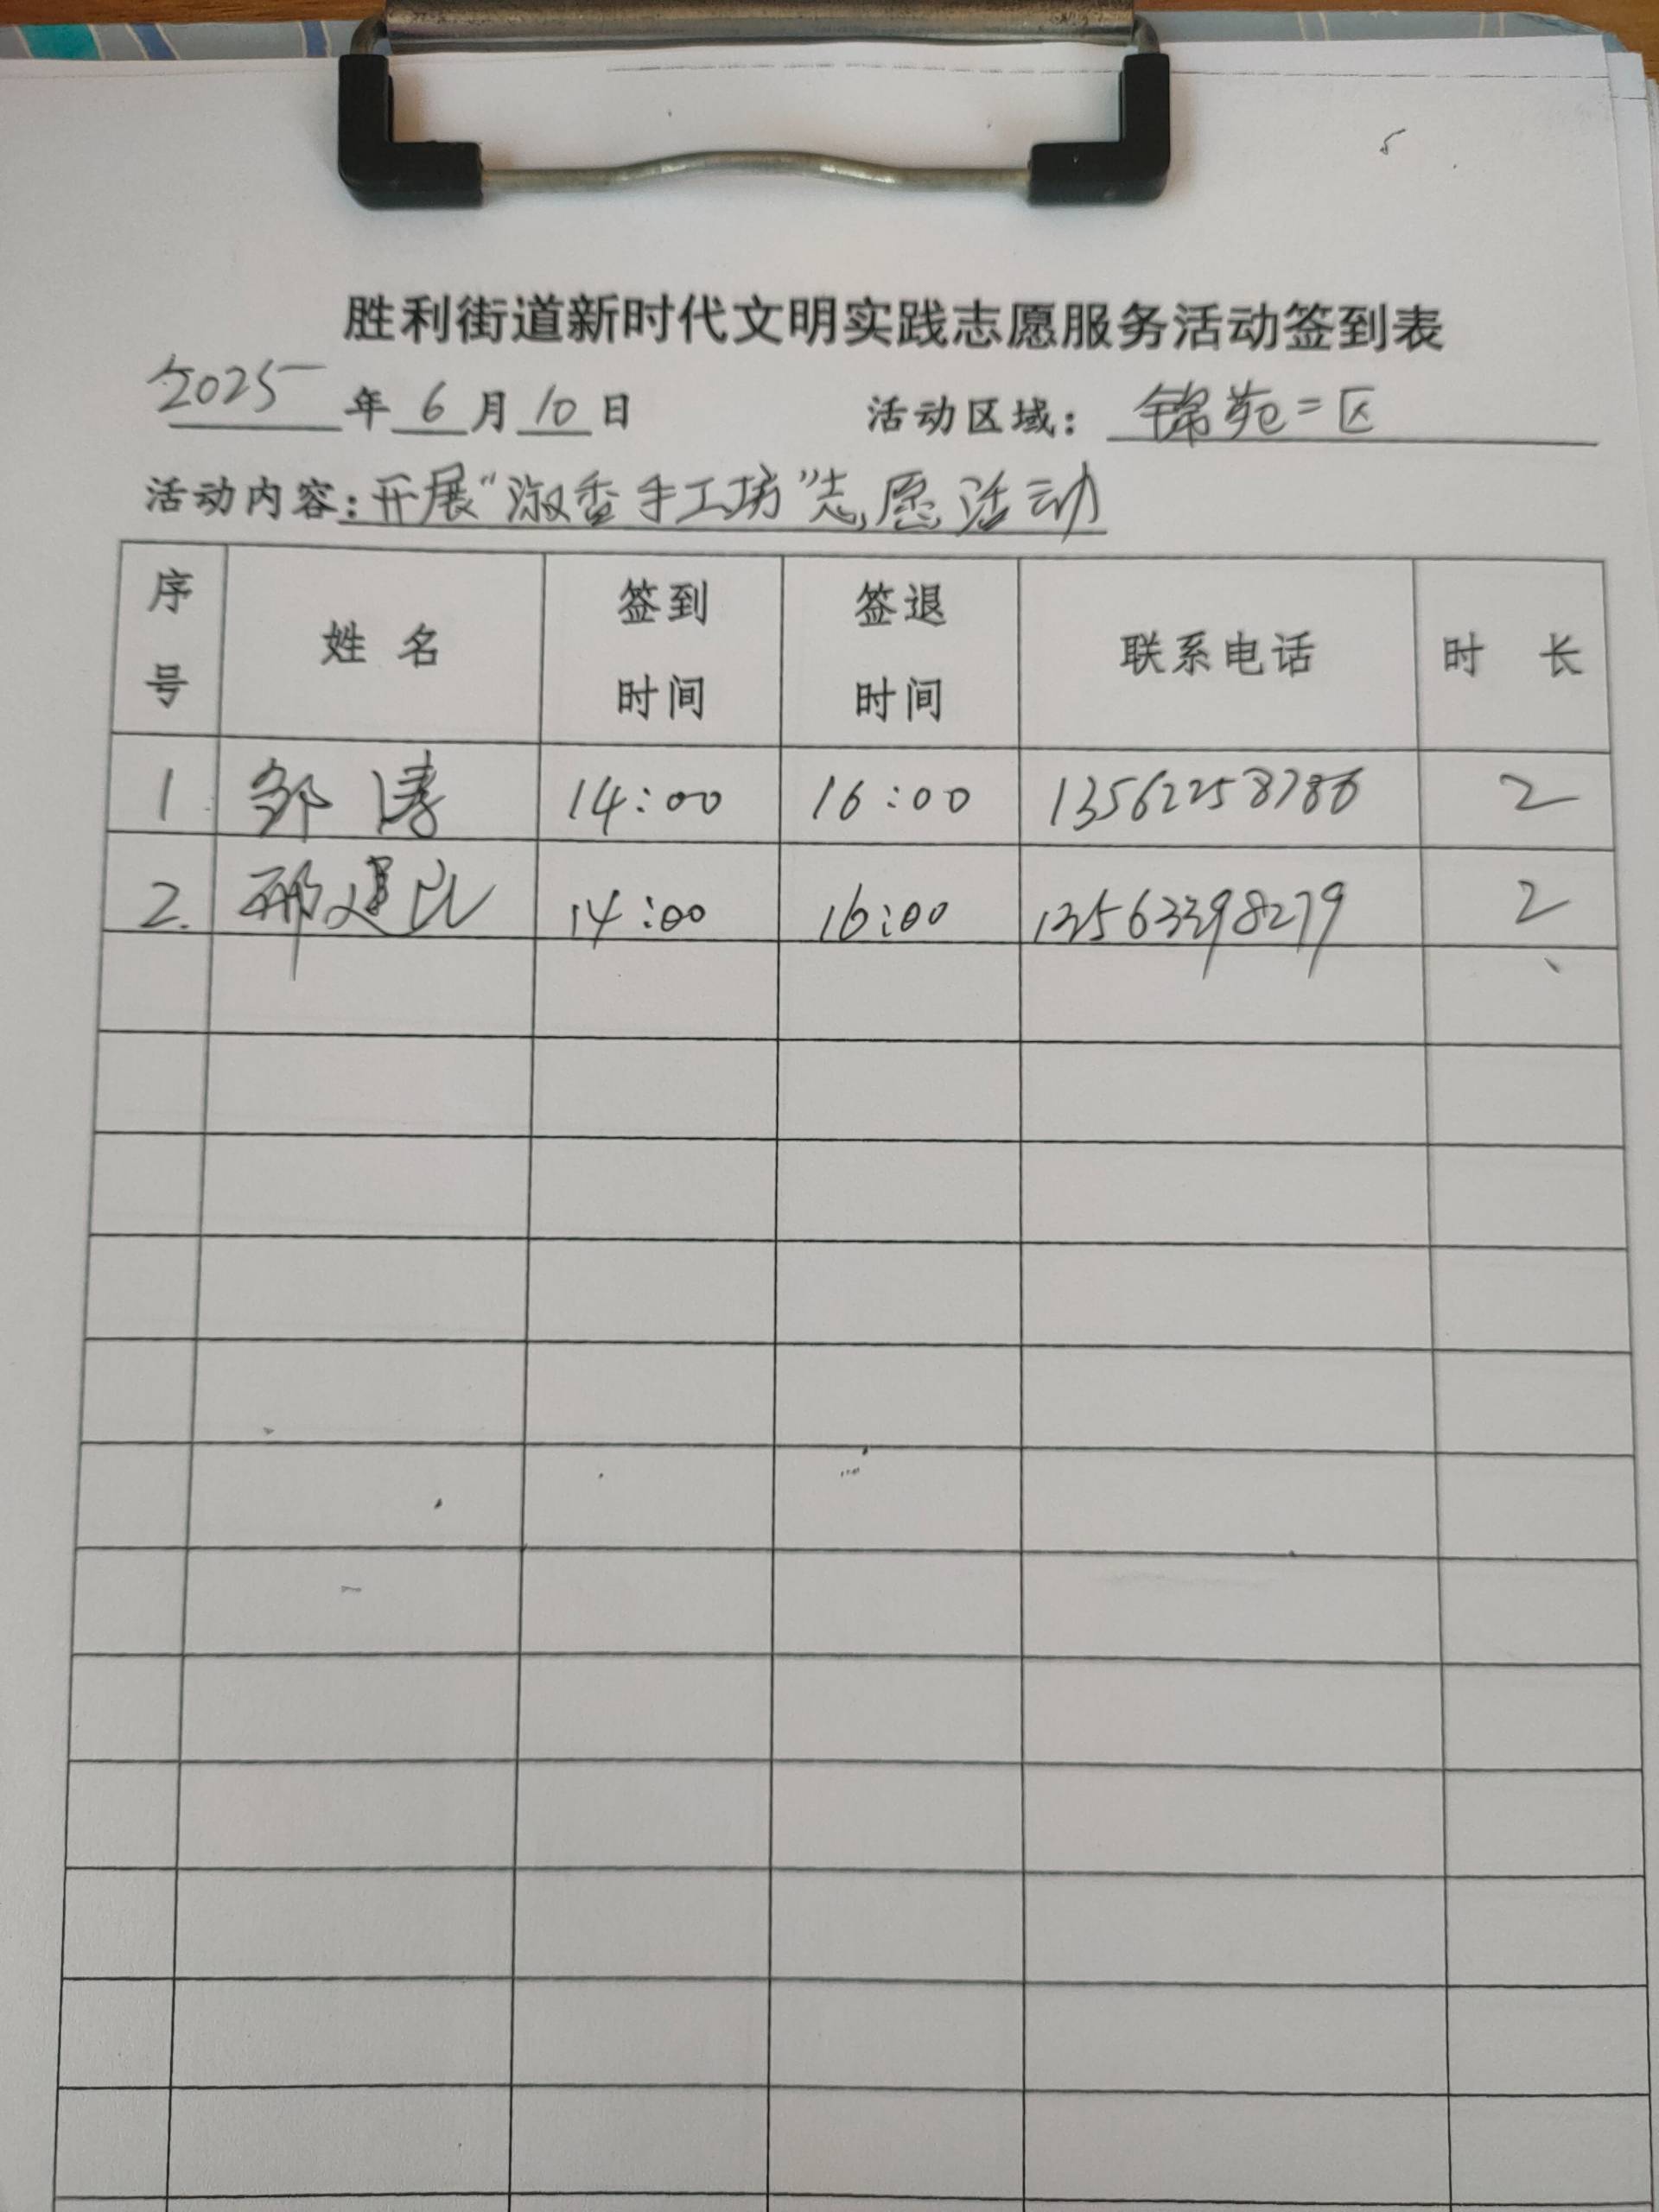 胜利街道新时代文明实践志愿服务活动签到表
2025年6月10日 活动区域：锦苑二区
活动内容：开展“淑香手工坊”志愿活动
序号 姓名 签到时间 签退时间 联系电话 时长
1 邹涛 14:00 16:00 13562258786 2
2. 邢建 14:00 16:00 13563398279 2